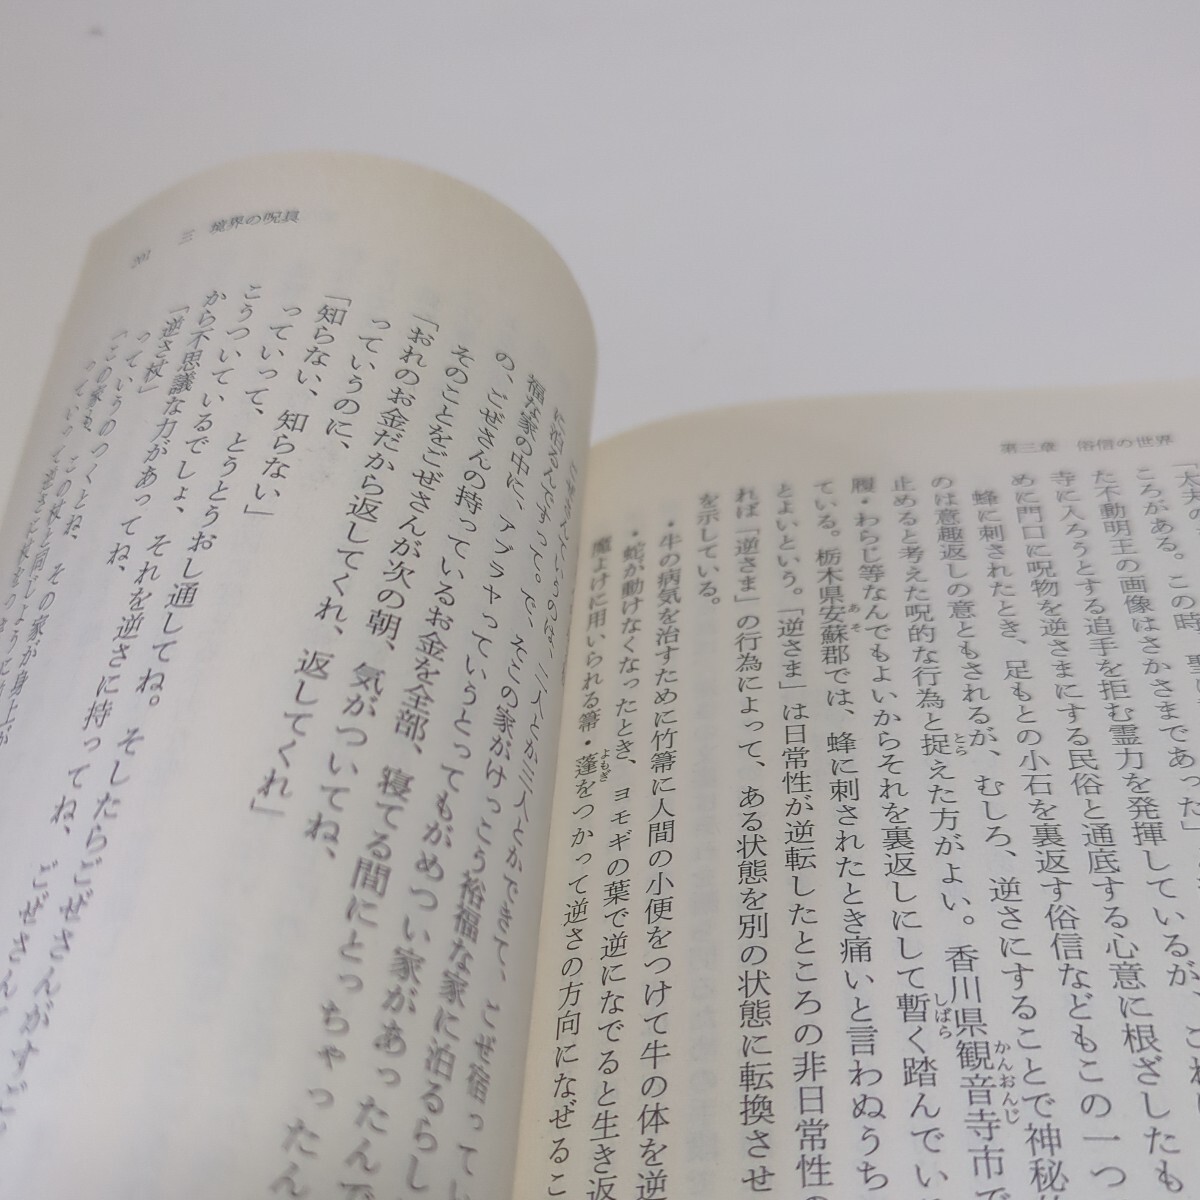 第三章 俗信の世界
ころがある。この時、聖
た不動明王の画像はさかさまであった」
寺に入ろうとする追手を拒む霊力を発揮しているが、これ
めに門口に呪物を逆さまにする民俗と通底する心意に根ざしたも
蜂に刺されたとき、足もとの小石を裏返す俗信などもこの一つ
のは意趣返しの意ともされるが、むしろ、逆さにすることで神秘
止めると考えた呪的な行為と捉えた方がよい。香川県観音寺市で
履・わらじ等なんでもよいからそれを裏返しにして暫く踏んでい
ている。栃木県安蘇郡では、蜂に刺されたとき痛いと言わぬうち
とよいという。「逆さま」は日常性が逆転したところの非日常性の
れば「逆さま」の行為によって、ある状態を別の状態に転換させ
を示している。
・牛の病気を治すために竹箒に人間の小便をつけて牛の体を逆
・蛇が動けなくなったとき、ヨモギの葉で逆になでると生き返
魔よけに用いられる箒・蓬をつかって逆さの方向になぜるこ
201 三 境界の呪具
に泊るんですって。で、そこの家がけっこう裕福な家に泊るらし
福な家の中に、アブラヤっていうとってもがめつい家があったんで
の、ごぜさんの持っているお金を全部、寝てる間にとっちゃったん
そのことをごぜさんが次の朝、気がついてね、
「おれのお金だから返してくれ、返してくれ」
っていうのに、
「知らない、知らない」
っていって、とうとうおし通してね。そしたらごぜさんがすご
こうついているでしょ、それを逆さに持ってね、ごぜさん
から不思議な力があってね、
「逆さ杖」
っていうのつくとね、その家が身上が